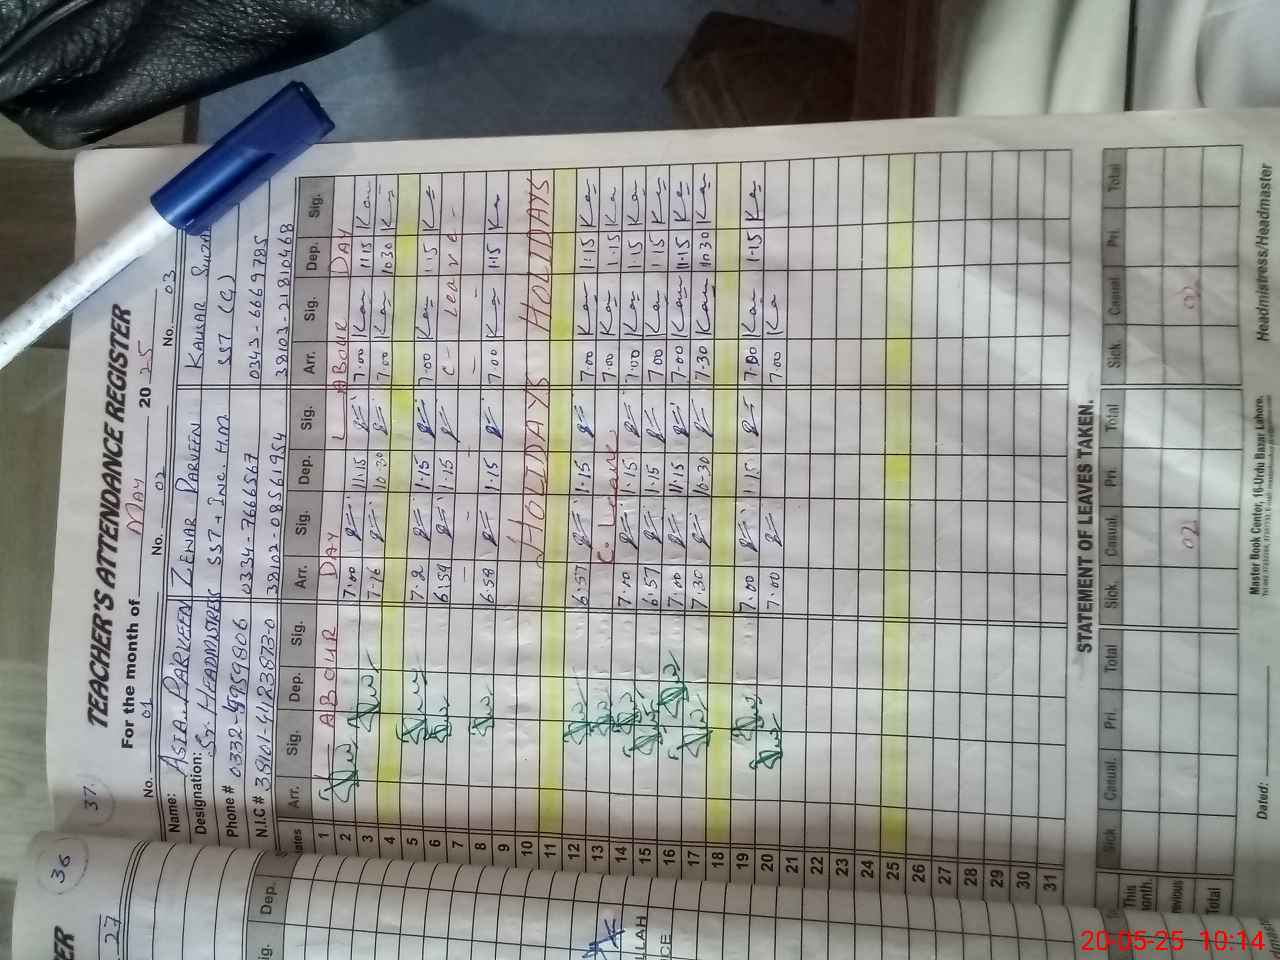 37
TEACHER'S ATTENDANCE REGISTER
For the month of MAY 2025
No. 01 No. 02 No. 03
Name: ASIA PARVEEN ZEENAR PARVEEN KAUSAR
Designation: Sr. HEADMISTRESS SST + INC. H.M SST (G)
Phone # 0332-4959806 0334-7666567 0343-6669785
N.I.C # 38101-4183873-0 38102-0856195-4 38103-2181046-8
Dates Arr. Sig. Dep. Sig. Arr. Sig. Dep. Sig. Arr. Sig. Dep. Sig.
1 LABOUR DAY LABOUR DAY
2 7:00 11:15 7:00 11:15
3 7:16 10:30 7:00 10:30
4
5 7:2 1:15 7:00 1:15
6 6:59 1:15 C- Leave -
7 - - - -
8 6:58 1:15 7:00 1:15
9
10 HOLIDAYS HOLIDAYS HOLIDAYS
11
12 6:57 1:15 7:00 1:15
13 C. Leave 7:00 1:15
14 7:00 1:15 7:00 1:15
15 6:57 1:15 7:00 1:15
16 7:00 11:15 7:00 11:15
17 7:30 10-30 7:30 10:30
18
19 7:00 1:15 7:00 1-15
20 7:00 7:00
21
22
23
24
25
26
27
28
29
30
31
STATEMENT OF LEAVES TAKEN.
Sick. Casual. Pri. Total Sick. Casual. Pri. Total Sick. Casual Pri. Total
This
onth.
revious 02 02
Total
Dated: Headmistress/Headmaster
Master Book Center, 16-Urdu Bazar Lahore.
36
ER
27
Dep.
ig.
LLAH
CE
20-05-25 10:14